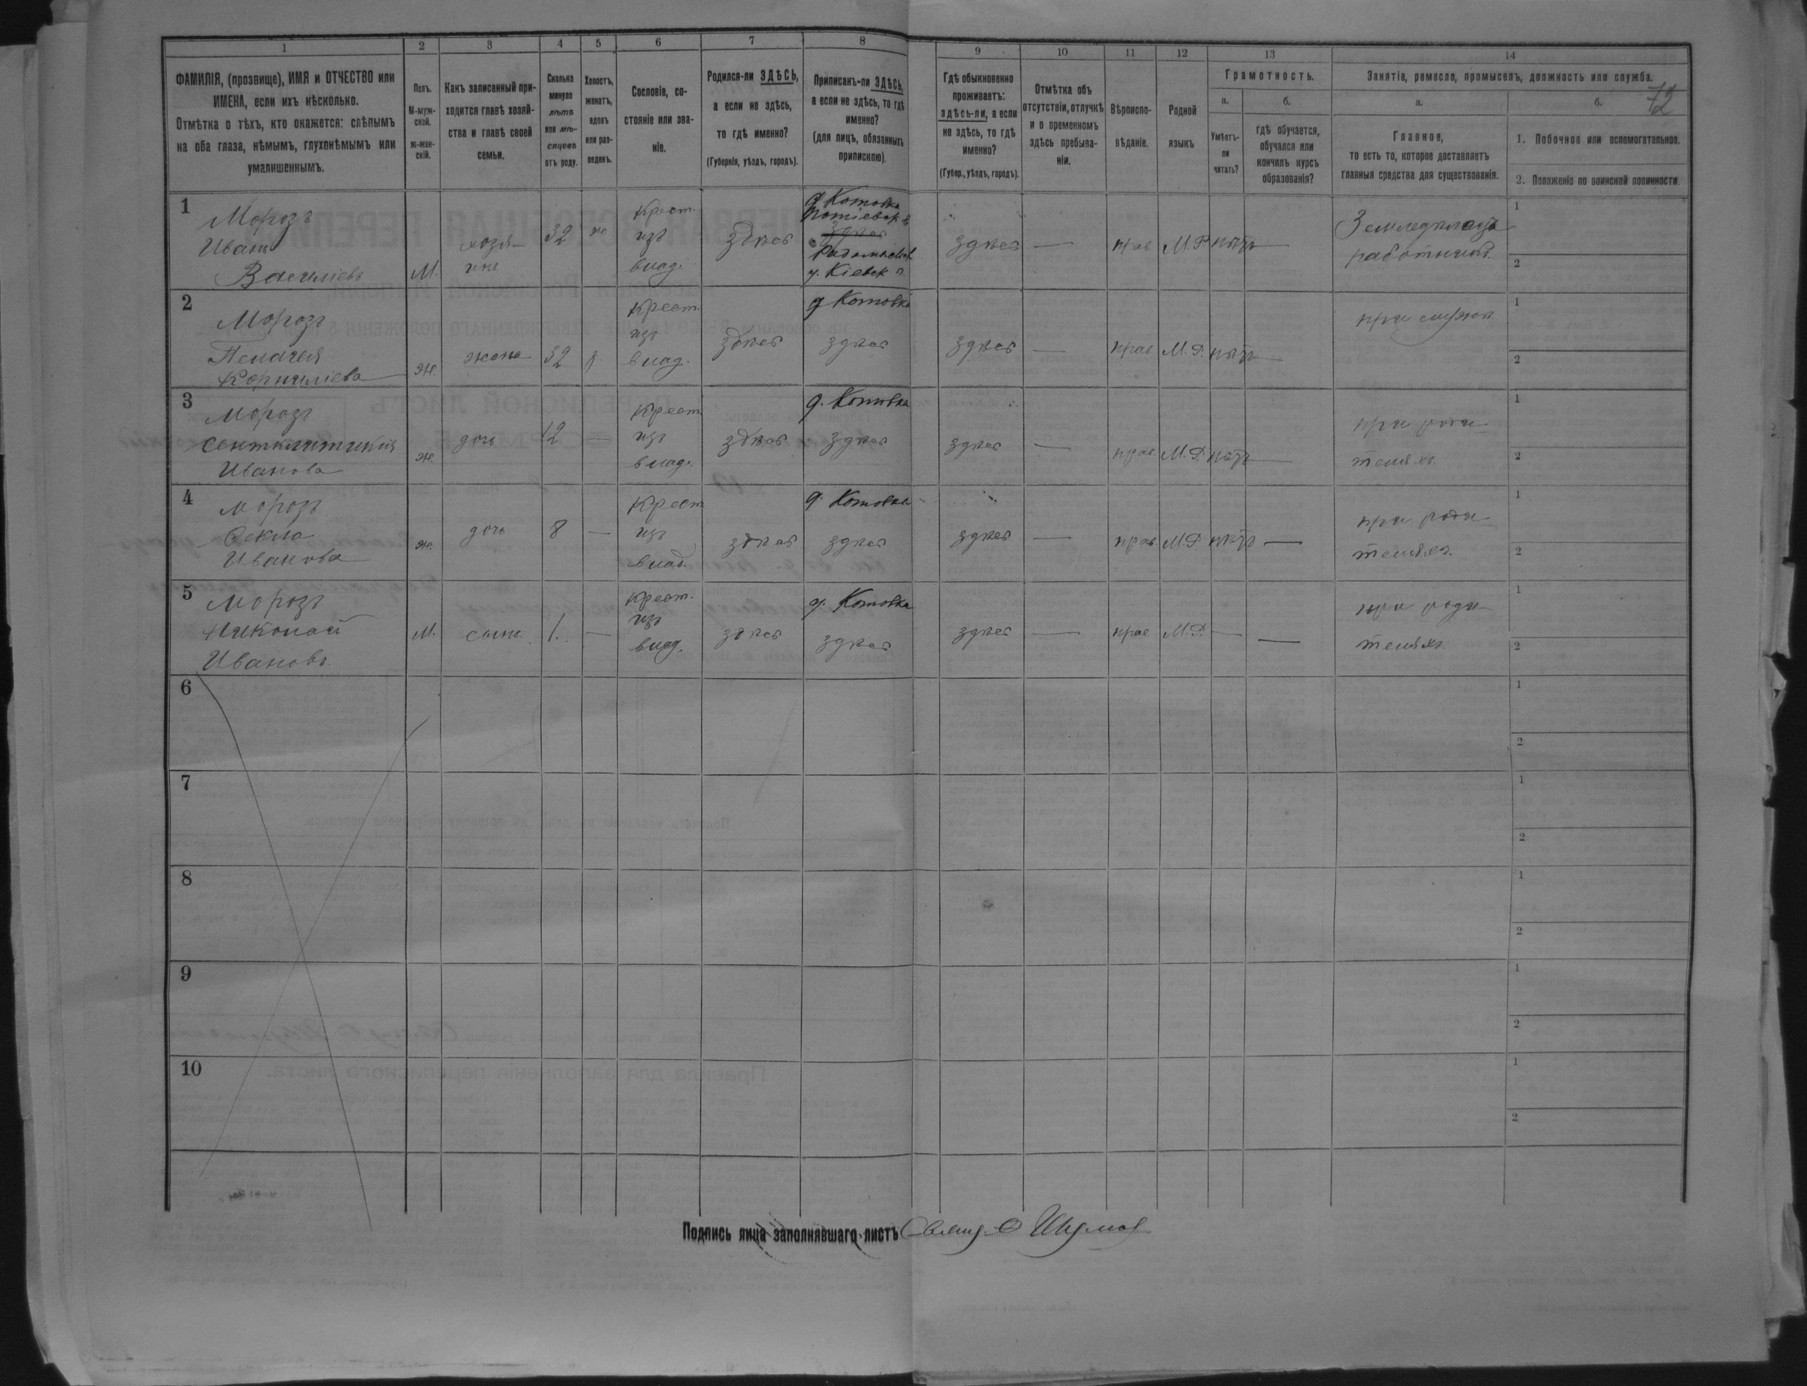 1
2
3
4
5
6
7
8
9
10
11
12
13
14
72
ФАМИЛІЯ, (прозвище), ИМЯ и ОТЧЕСТВО или
ИМЕНА, если ихъ нѣсколько.
Отмѣтка о тѣхъ, кто окажется: слѣпымъ
на оба глаза, нѣмымъ, глухонѣмымъ или
умалишеннымъ.
Полъ.
М-муж-
ской.
Ж-жен-
скій.
Какъ записанный при-
ходится главѣ хозяй-
ства и главѣ своей
семьи.
Сколько
минуло
лѣтъ
или мѣ-
сяцевъ
отъ роду.
Холостъ,
женатъ,
вдовъ
или раз-
веденъ.
Сословіе, со-
стояніе или зва-
ніе.
Родился-ли ЗДѢСЬ,
а если не здѣсь,
то гдѣ именно?
(Губернія, уѣздъ, городъ).
Приписанъ-ли ЗДѢСЬ,
а если не здѣсь, то гдѣ
именно?
(для лицъ, обязанныхъ
припискою).
Гдѣ обыкновенно
проживаетъ:
здѣсь-ли, а если
не здѣсь, то гдѣ
именно?
(Губер., уѣздъ, городъ).
Отмѣтка объ
отсутствіи, отлучкѣ
и о временномъ
здѣсь пребыва-
ніи.
Вѣроиспо-
вѣданіе.
Родной
языкъ
Грамотность.
а.
Умѣетъ-
ли
читать?
б.
гдѣ обучается,
обучался или
кончилъ курсъ
образованія?
Занятіе, ремесло, промыселъ, должность или служба.
а.
Главное,
то есть то, которое доставляетъ
главныя средства для существованія.
б.
1. Побочное или вспомогательное.
2. Положеніе по воинской повинности.
1
Морозъ
Иванъ
Васильевъ
М.
хозя-
инъ
32
ж
Крест.
изъ
влад.
здѣсь
д Котовка
здѣсь
у. Кіевск г
здѣсь
—
прав
М.Р
нѣтъ
—
Земледѣлецъ
работникъ
1
2
2
Морозъ
Пелагея
Корнилієва
ж.
жена
32
Крест.
изъ
влад.
здѣсь
д Котовка
здѣсь
здѣсь
—
прав
М.Р.
нѣтъ
—
при мужѣ
1
2
3
Морозъ
Иванова
ж.
дочь
12
—
Крест
изъ
влад.
здѣсь
д. Котовка
здѣсь
здѣсь
—
прав
М.Р.
нѣтъ
—
при роди-
теляхъ
1
2
4
Морозъ
Ѳекла
Иванова
ж.
дочь
8
—
Крест
изъ
влад.
здѣсь
д. Котовка
здѣсь
здѣсь
—
прав
М.Р
нѣтъ
—
при роди-
теляхъ.
1
2
5
Морозъ
Николай
Ивановъ
М.
сынъ
1.
—
Крест.
изъ
влад.
здѣсь
д. Котовка
здѣсь
здѣсь
—
прав
М.Р.
—
—
при роди-
теляхъ
1
2
6
1
2
7
1
2
8
1
2
9
1
2
10
1
2
Подпись лица заполнявшаго листъ